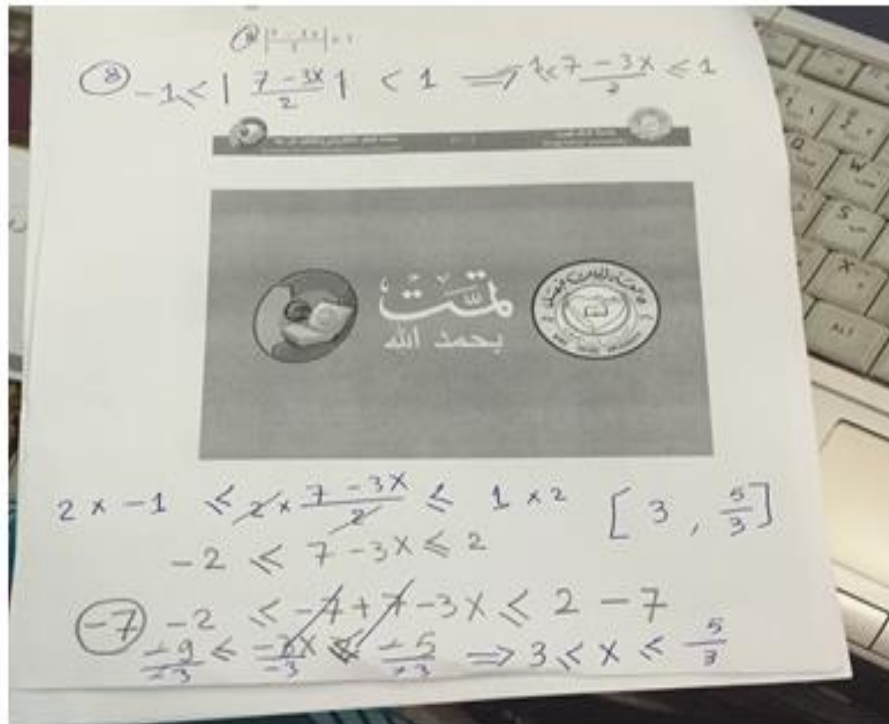 ⑧ -1 ≤ | 7 - 3x / 2 | < 1 ⟹ 1 ≤ 7 - 3x / 2 ≤ 1
تمت
بحمد الله
2 × -1 ≤ 2 × 7 - 3x / 2 ≤ 1 × 2 [ 3 , 5/3 ]
-2 ≤ 7 - 3x ≤ 2
-7 -2 ≤ -7 + 7 - 3x ≤ 2 - 7
-9/-3 ≤ -3x/-3 ≤ -5/-3 ⟹ 3 ≤ x ≤ 5/3
Q
W
S
X
ALT